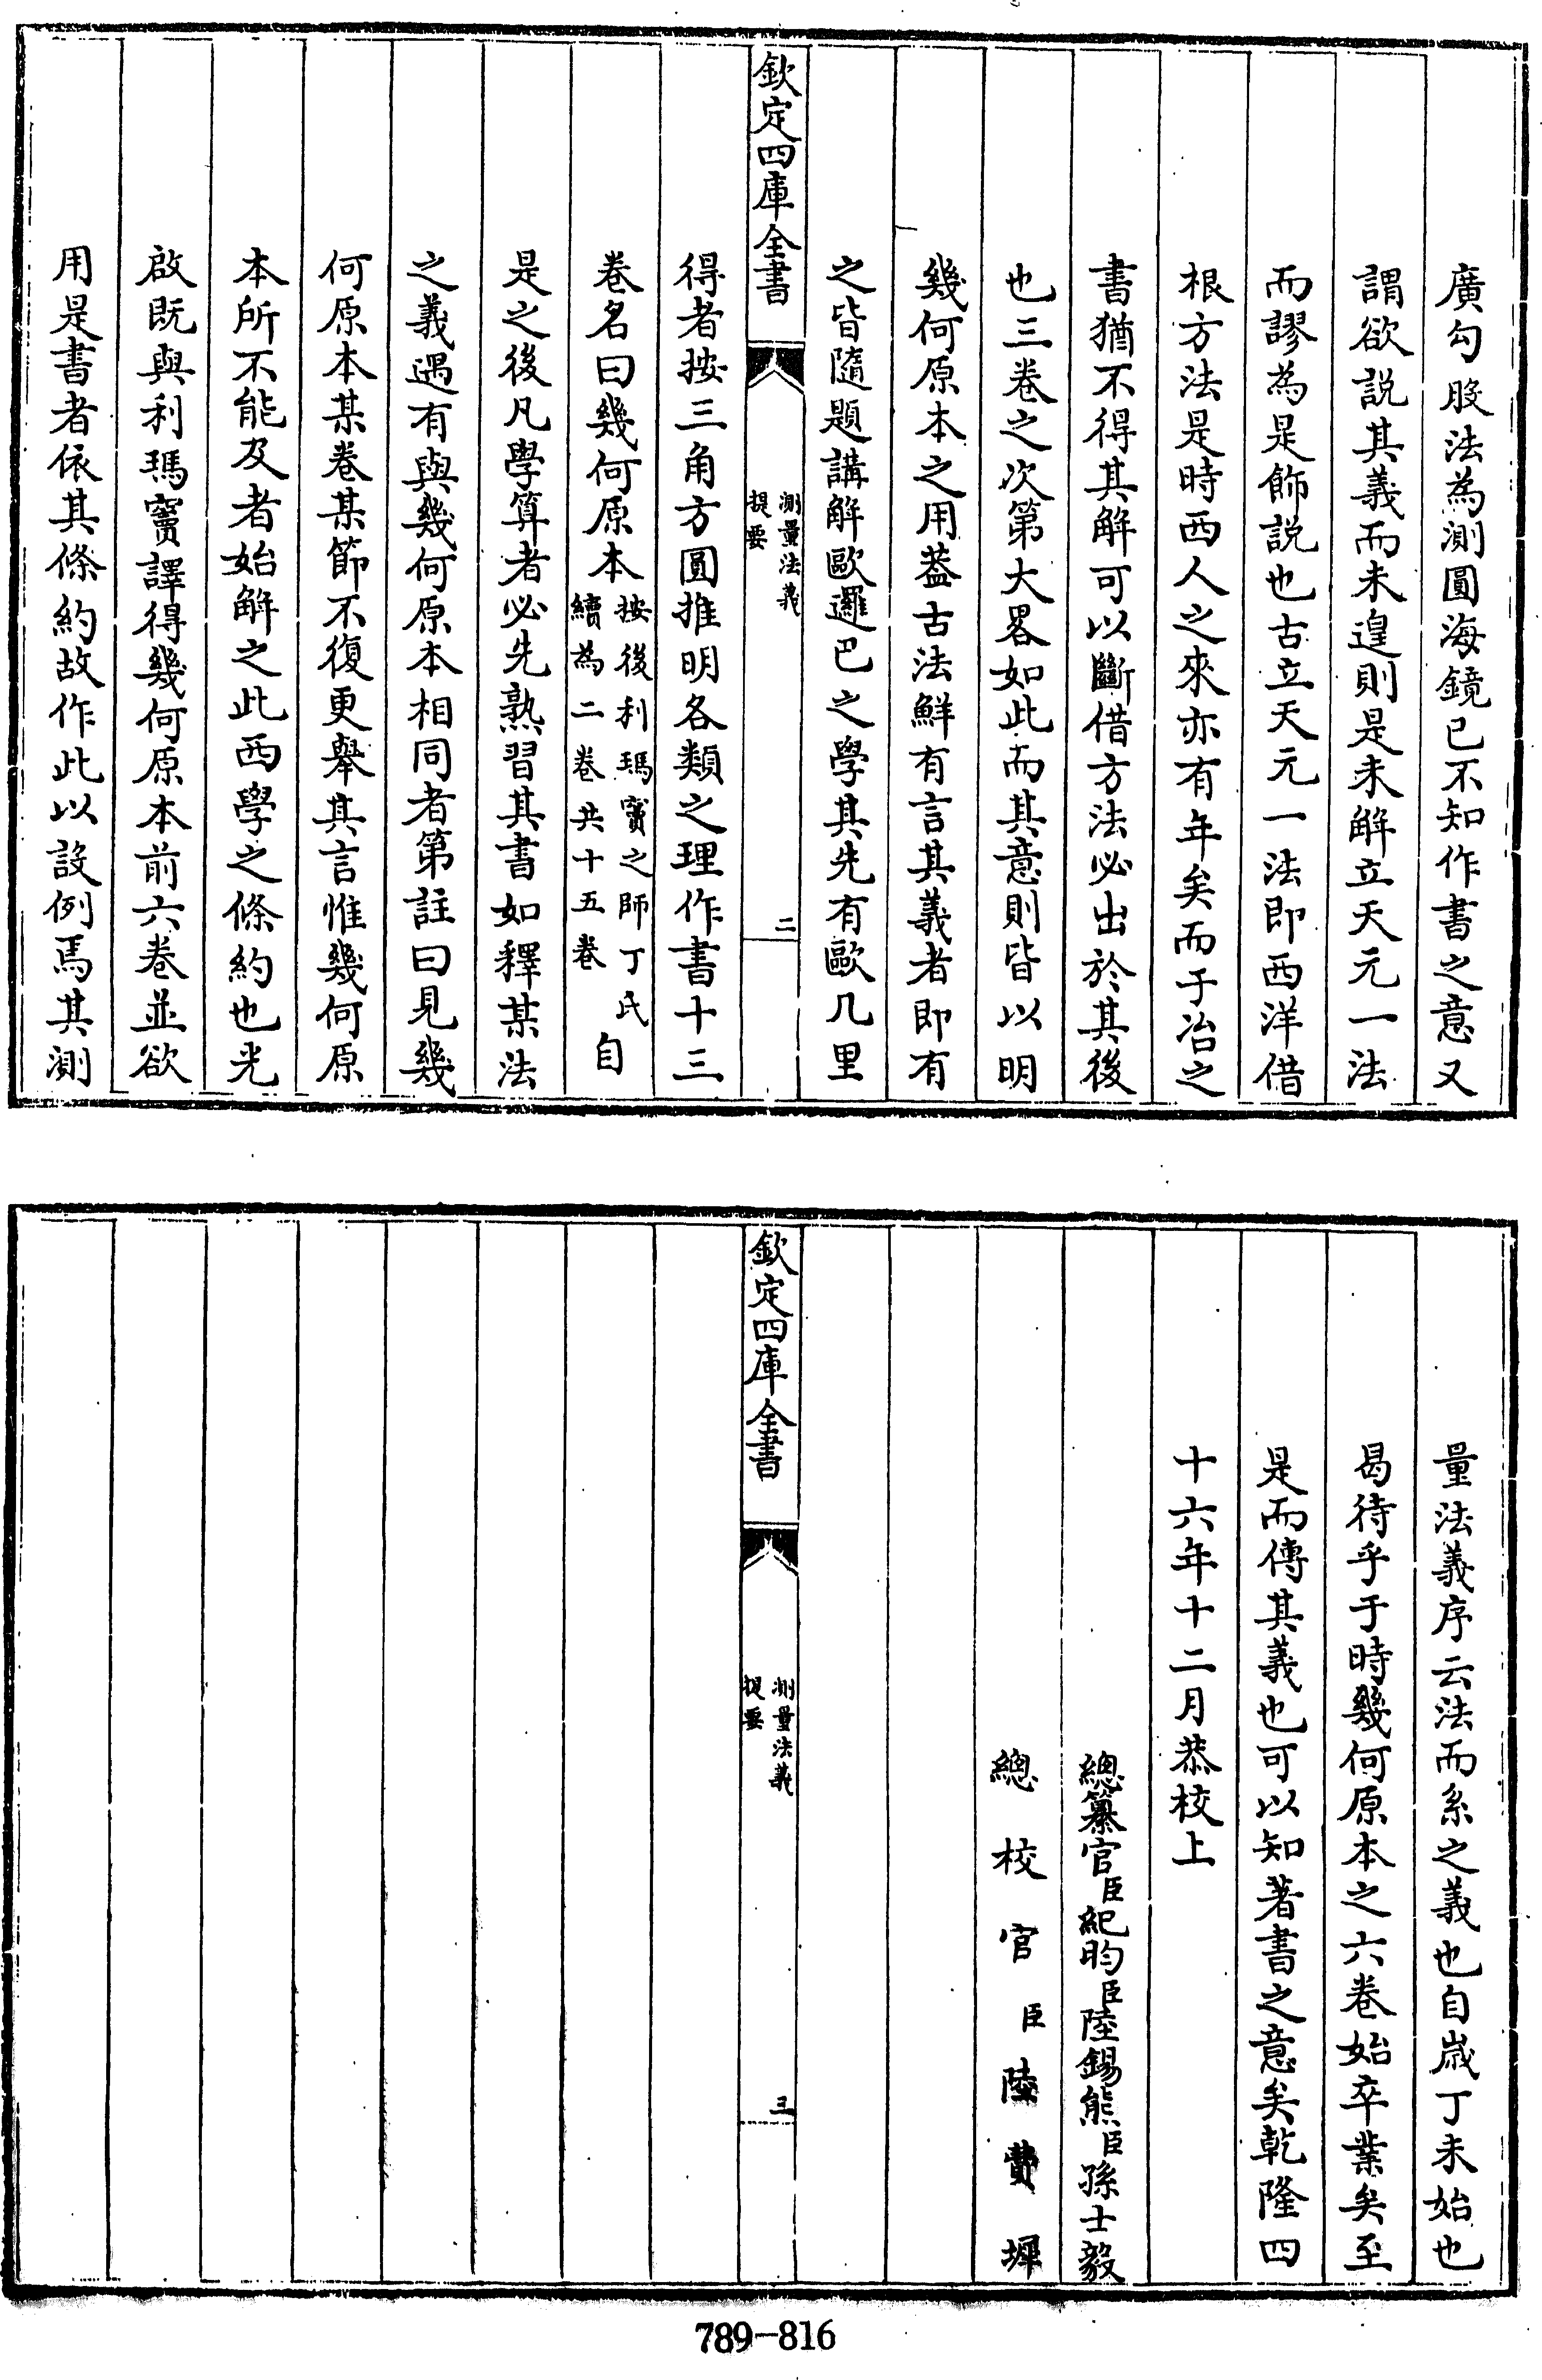 廣勾股法為測圓海鏡已不知作書之意又
謂欲説其義而未遑則是未解立天元一法
而謬為是飾説也古立天元一法即西洋借
根方法是時西人之來亦有年矣而于冶之
書猶不得其解可以斷借方法必出於其後
也三卷之次第大畧如此而其意則皆以明
幾何原本之用葢古法鮮有言其義者即有
之皆隨題講解歐邏巴之學其先有歐几里
欽定四庫全書
測量法義
提要
二
得者按三角方圓推明各類之理作書十三
卷名曰幾何原本按後利瑪竇之師丁氏續為二卷共十五卷自
是之後凡學算者必先熟習其書如釋某法
之義遇有與幾何原本相同者第註曰見幾
何原本某卷某節不復更舉其言惟幾何原
本所不能及者始解之此西學之條約也光
啟既與利瑪竇譯得幾何原本前六卷並欲
用是書者依其條約故作此以設例焉其測
量法義序云法而系之義也自嵗丁未始也
曷待乎于時幾何原本之六卷始卒業矣至
是而傳其義也可以知著書之意矣乾隆四
十六年十二月恭校上
總纂官臣紀昀臣陸錫熊臣孫士毅
總校官臣陸費墀
欽定四庫全書
測量法義
提要
三
789-816